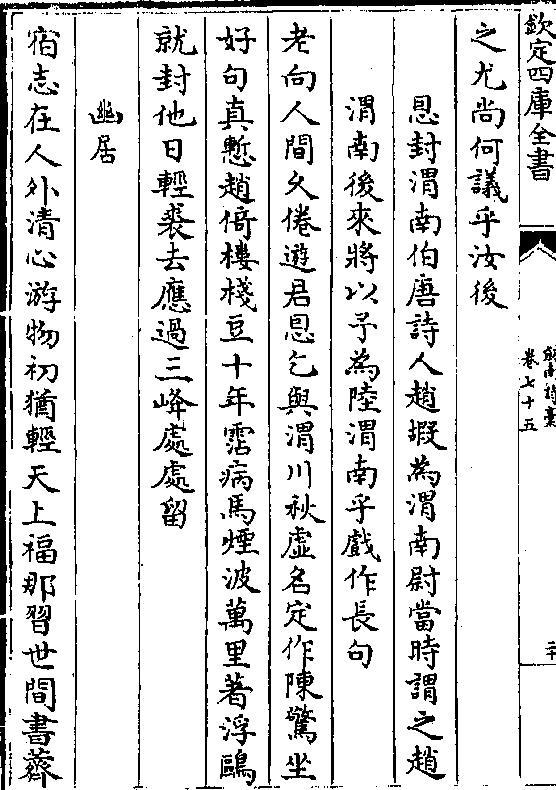 欽定四庫全書
劍南詩藁
卷七十五
二十
之尤尚何議乎汝後
恩封渭南伯唐詩人趙嘏為渭南尉當時謂之趙
渭南後來將以予為陸渭南乎戲作長句
老向人間久倦遊君恩乞與渭川秋虛名定作陳驚坐
好句真慙趙倚樓棧豆十年霑病馬煙波萬里著浮鷗
就封他日輕裘去應過三峰處處留
幽居
宿志在人外清心游物初猶輕天上福那習世間書薺